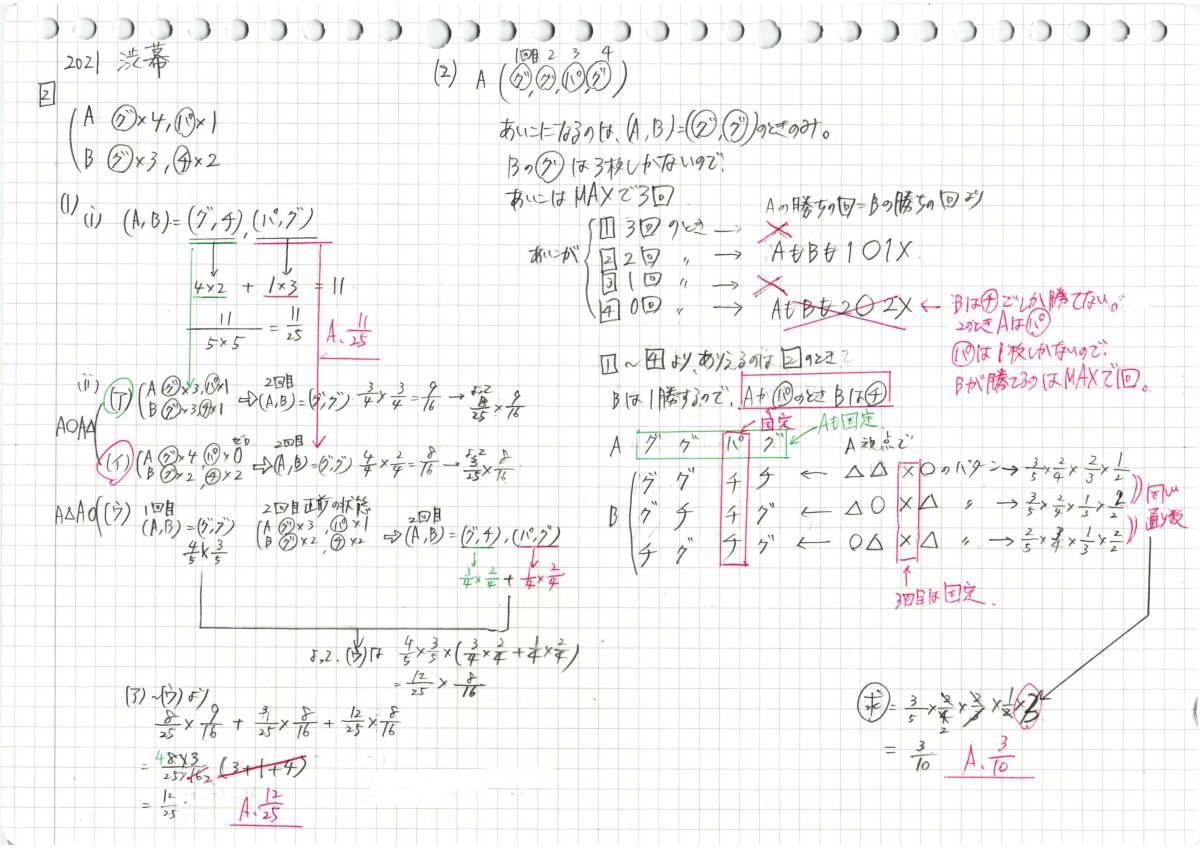 2021 渋幕
2
A グ×4, パ×1
B グ×3, チ×2
(1)
(i) (A, B) = (グ, チ), (パ, グ)
4×2 + 1×3 = 11
11/5×5 = 11/25
A. 11/25
(ii)
A○A△
(ア) A グ×3, パ×1
B グ×3, チ×1
⇨ 2回目 (A, B) = (グ, グ) 3/4 × 3/4 = 9/16 → よって 8/25 × 9/16
(イ) A グ×4, パ×0 ゼロ
B グ×2, チ×2
⇨ 2回目 (A, B) = (グ, グ) 4/4 × 2/4 = 8/16 → よって 3/25 × 8/16
A△A○ (ウ) 1回目
(A, B) = (グ, グ)
4/5 × 3/5
2回目直前の状態
A グ×3, パ×1
B グ×2, チ×2
⇨ 2回目 (A, B) = (グ, チ), (パ, グ)
3/4 × 2/4 + 1/4 × 2/4
よって、(ウ)は 4/5 × 3/5 × (3/4 × 2/4 + 1/4 × 2/4)
= 12/25 × 8/16
(ア)~(ウ)より
8/25 × 9/16 + 3/25 × 8/16 + 12/25 × 8/16
= 8×3/25×16 (3+1+4)
4 2
= 12/25.
A. 12/25
(2)
1回目 2 3 4
A (グ, グ, パ, グ)
あいこになるのは、(A, B) = (グ, グ)のときのみ。
Bのグは3枚しかないので、
あいこはMAXで3回
Aの勝ちの回=Bの勝ちの回より
あいこが
1 3回のとき → ×
2 2回 〃 → AもBも1○1×
3 1回 〃 → ×
4 0回 〃 → AもBも2○2×
← Bはチでしか勝てない。
2のときAはパ
パは1枚しかないので、
Bが勝てるのはMAXで1回。
1~4より、ありえるのは2のときで
Bは1勝するので、AがパのときBはチ
固定
Aも固定
A グ グ パ グ
A視点で
B
グ グ チ チ ← △△×○のパターン → 3/5 × 2/4 × 2/3 × 1/2
グ チ チ グ ← △○×△ 〃 → 3/5 × 2/4 × 1/3 × 2/2
チ グ チ グ ← ○△×△ 〃 → 2/5 × 3/4 × 1/3 × 2/2
同じ
通り数
3回目は固定.
求 = 3/5 × 2/4 × 2/3 × 1/2 × 3
2
= 3/10
A. 3/10